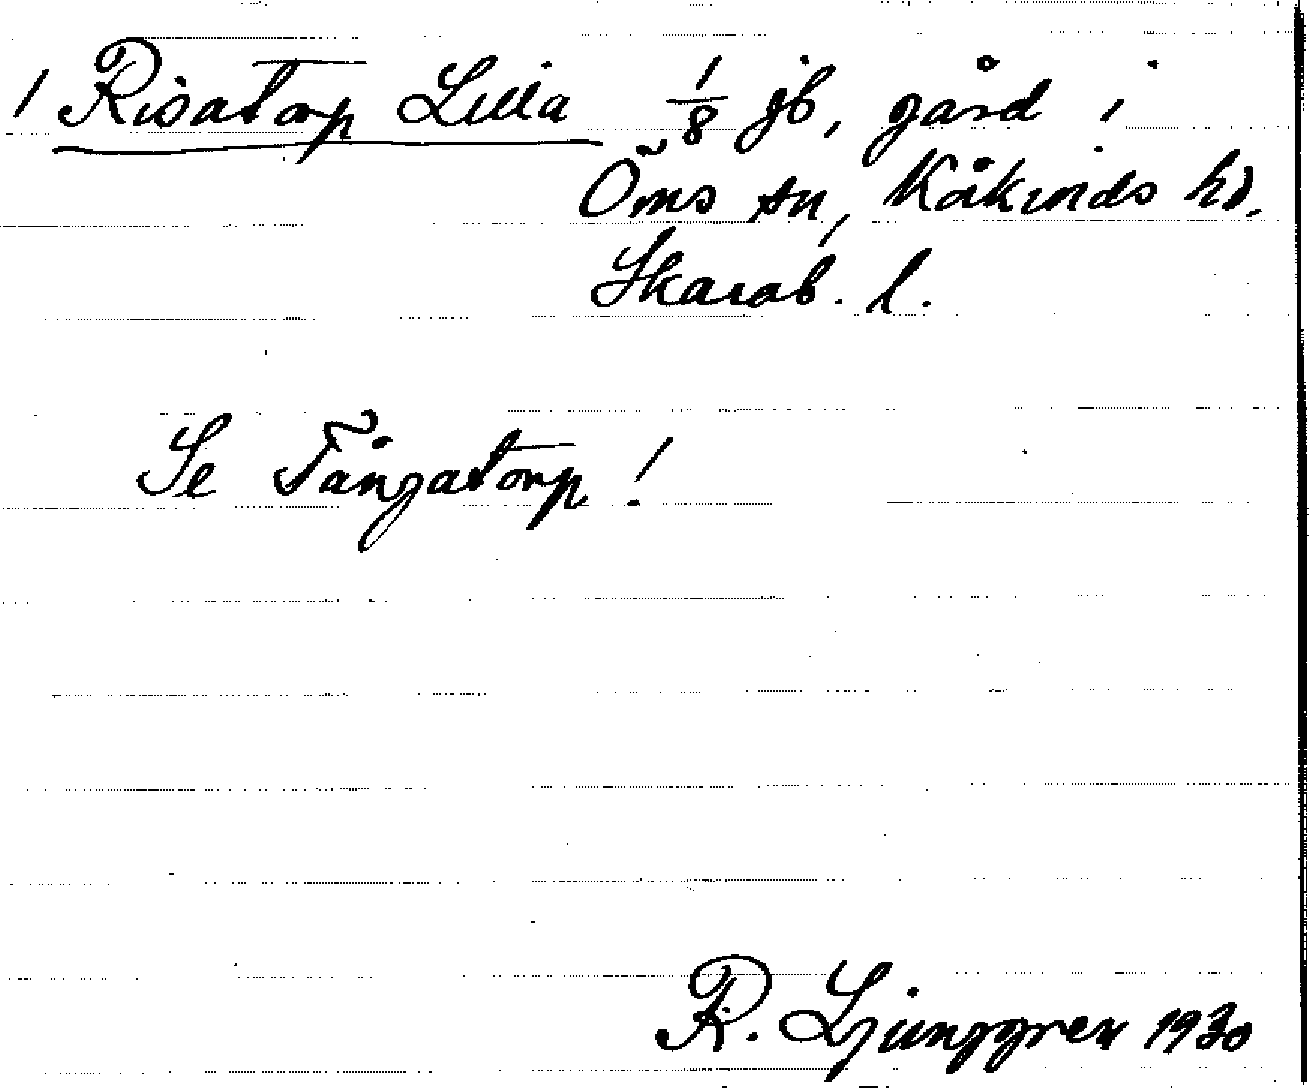 / Risatorp Lilla 1/8 jb, gård i
Öms sn, Kåkinds hd.
Skarab. l.
Se Tångatorp!
R. Ljunggren 1930